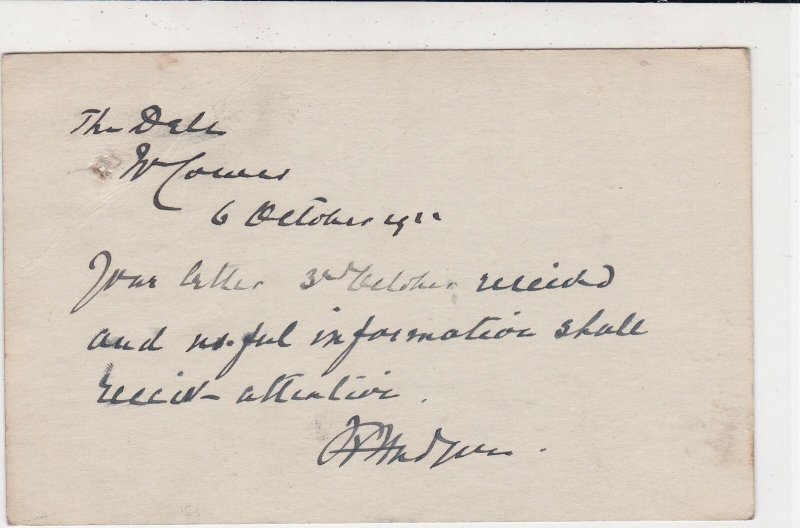 The Dell
W Cowes
6 October 1911
Your letter 3rd October received
and useful information shall
receive attention.